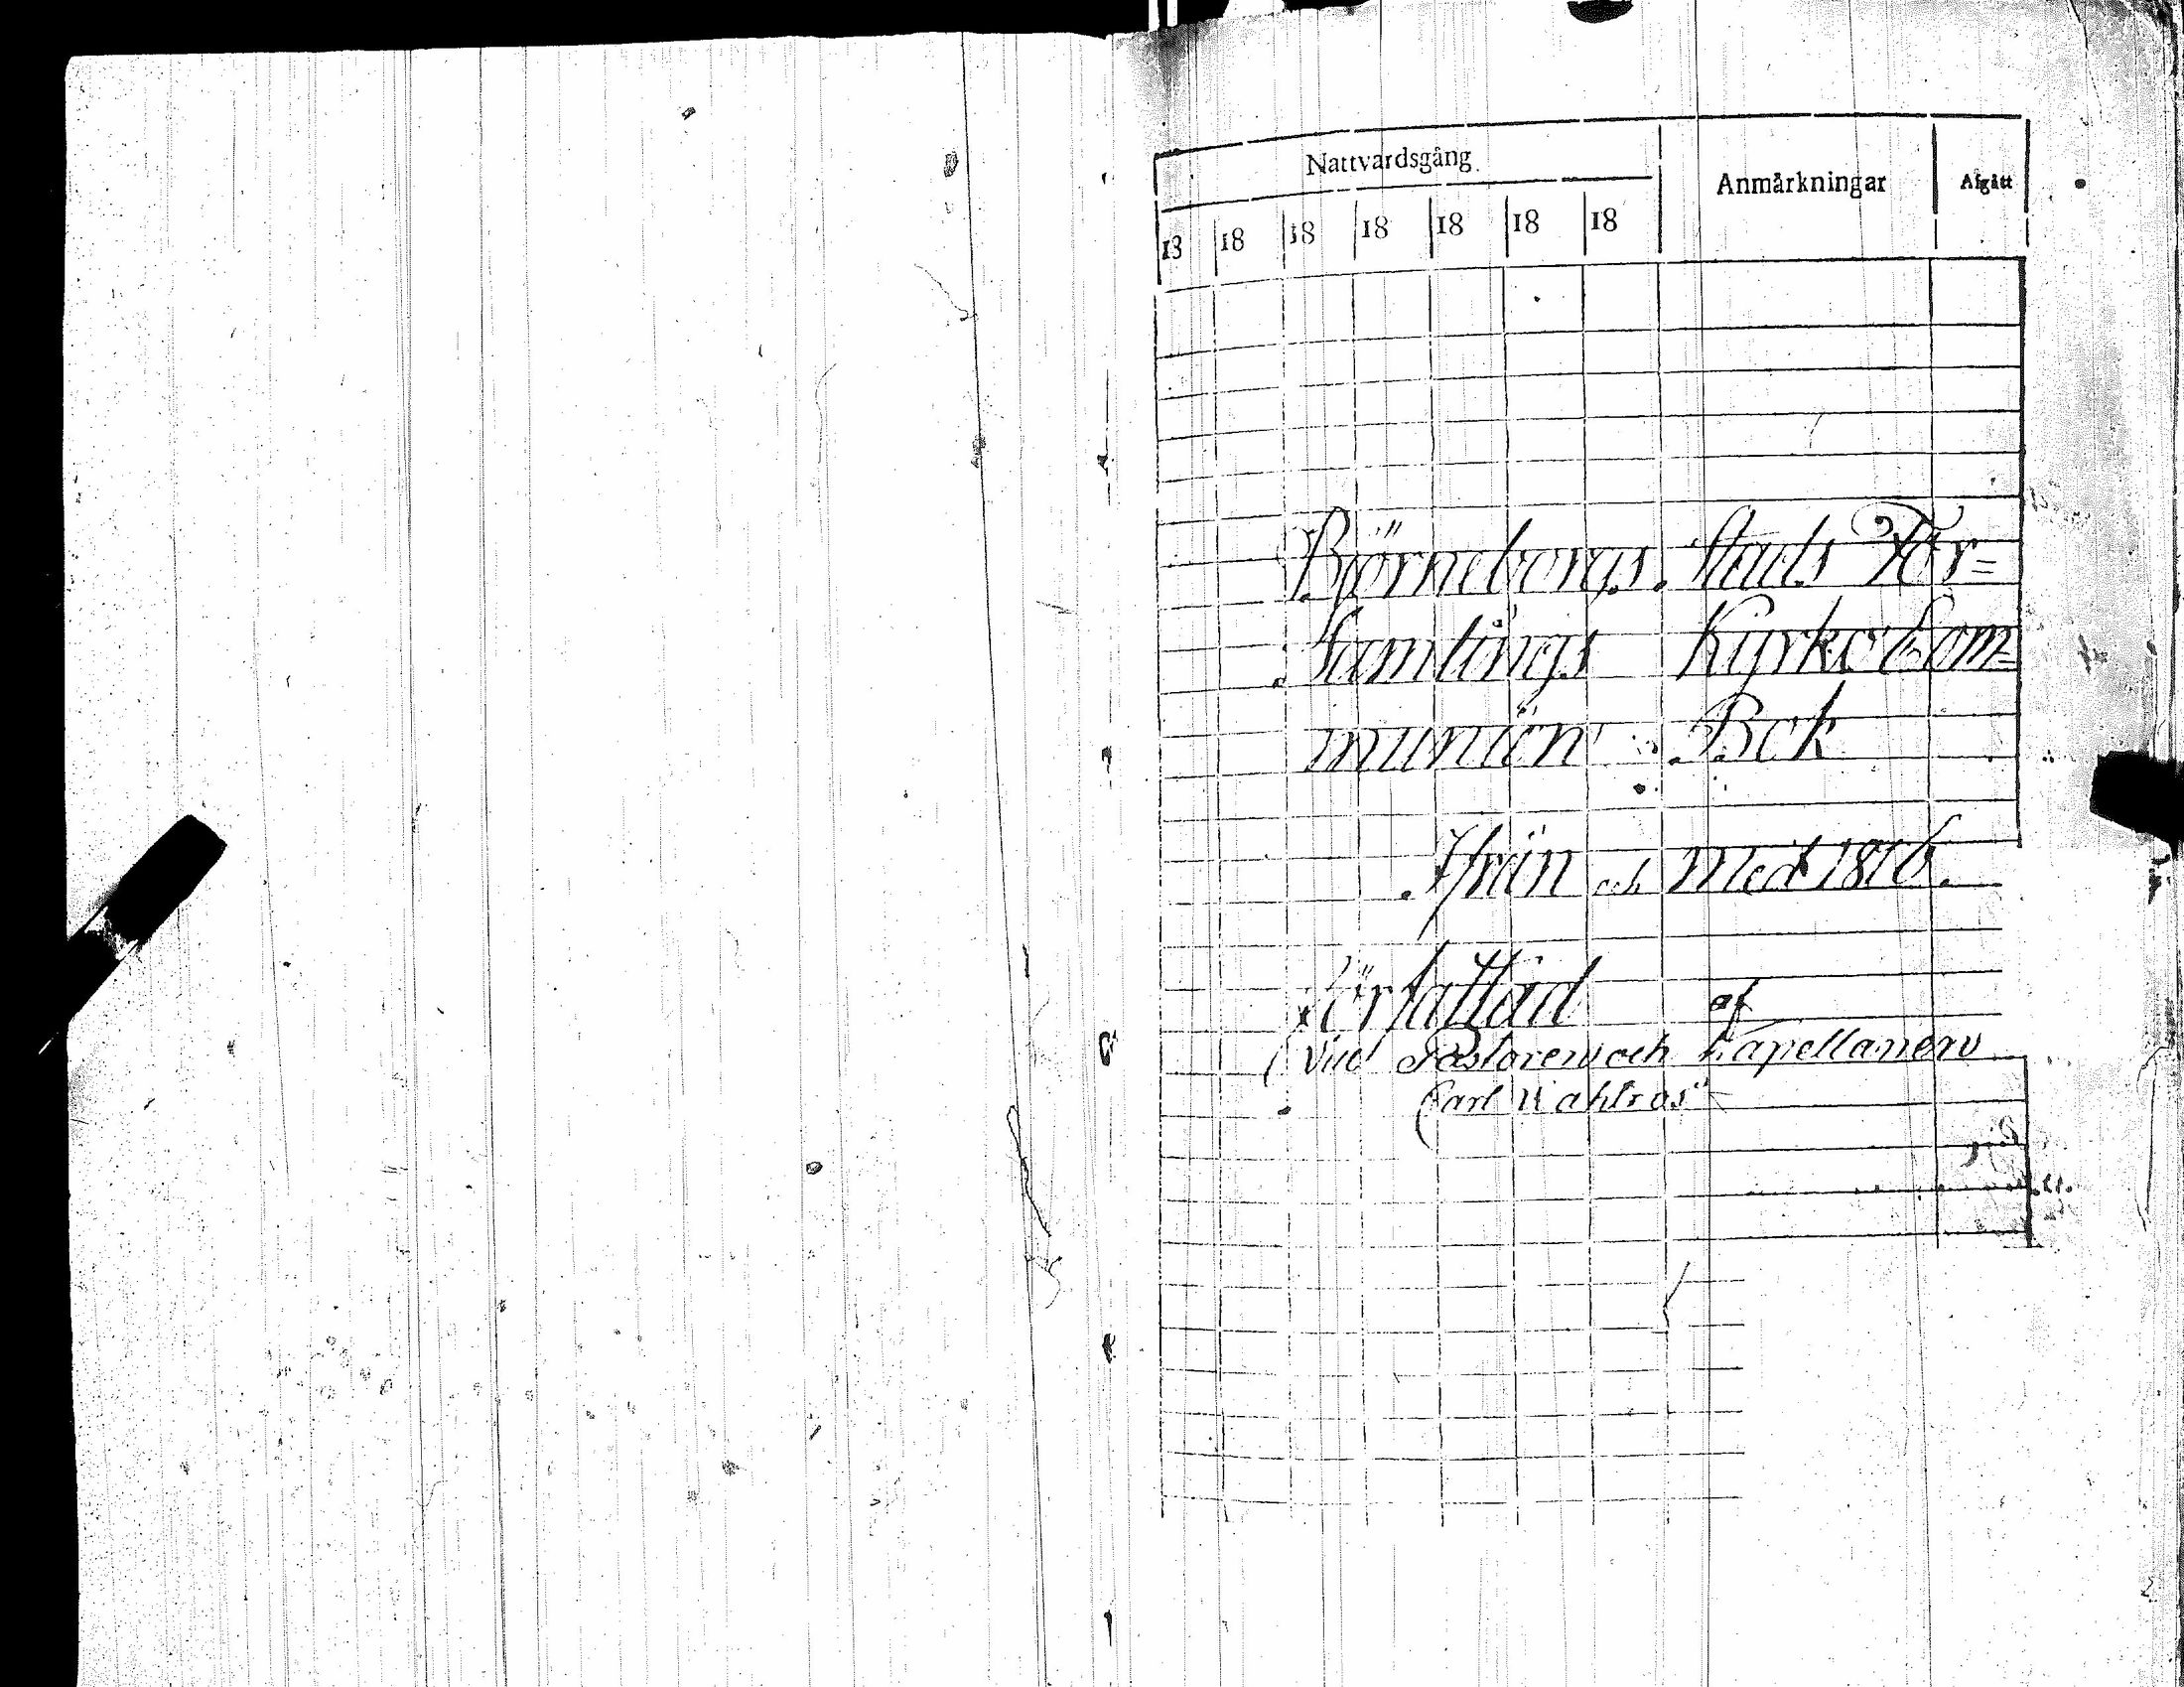 Nattvardsgång. Anmärkningar Afgått
18 18 18 18 18 18 18
Björneborgs Stads För=
samlings Kyrko Com=
munion Bok
Ifrån och Med 1816.
Författad af
Vice Pastoren och Capellanen
Carl Wahlroos